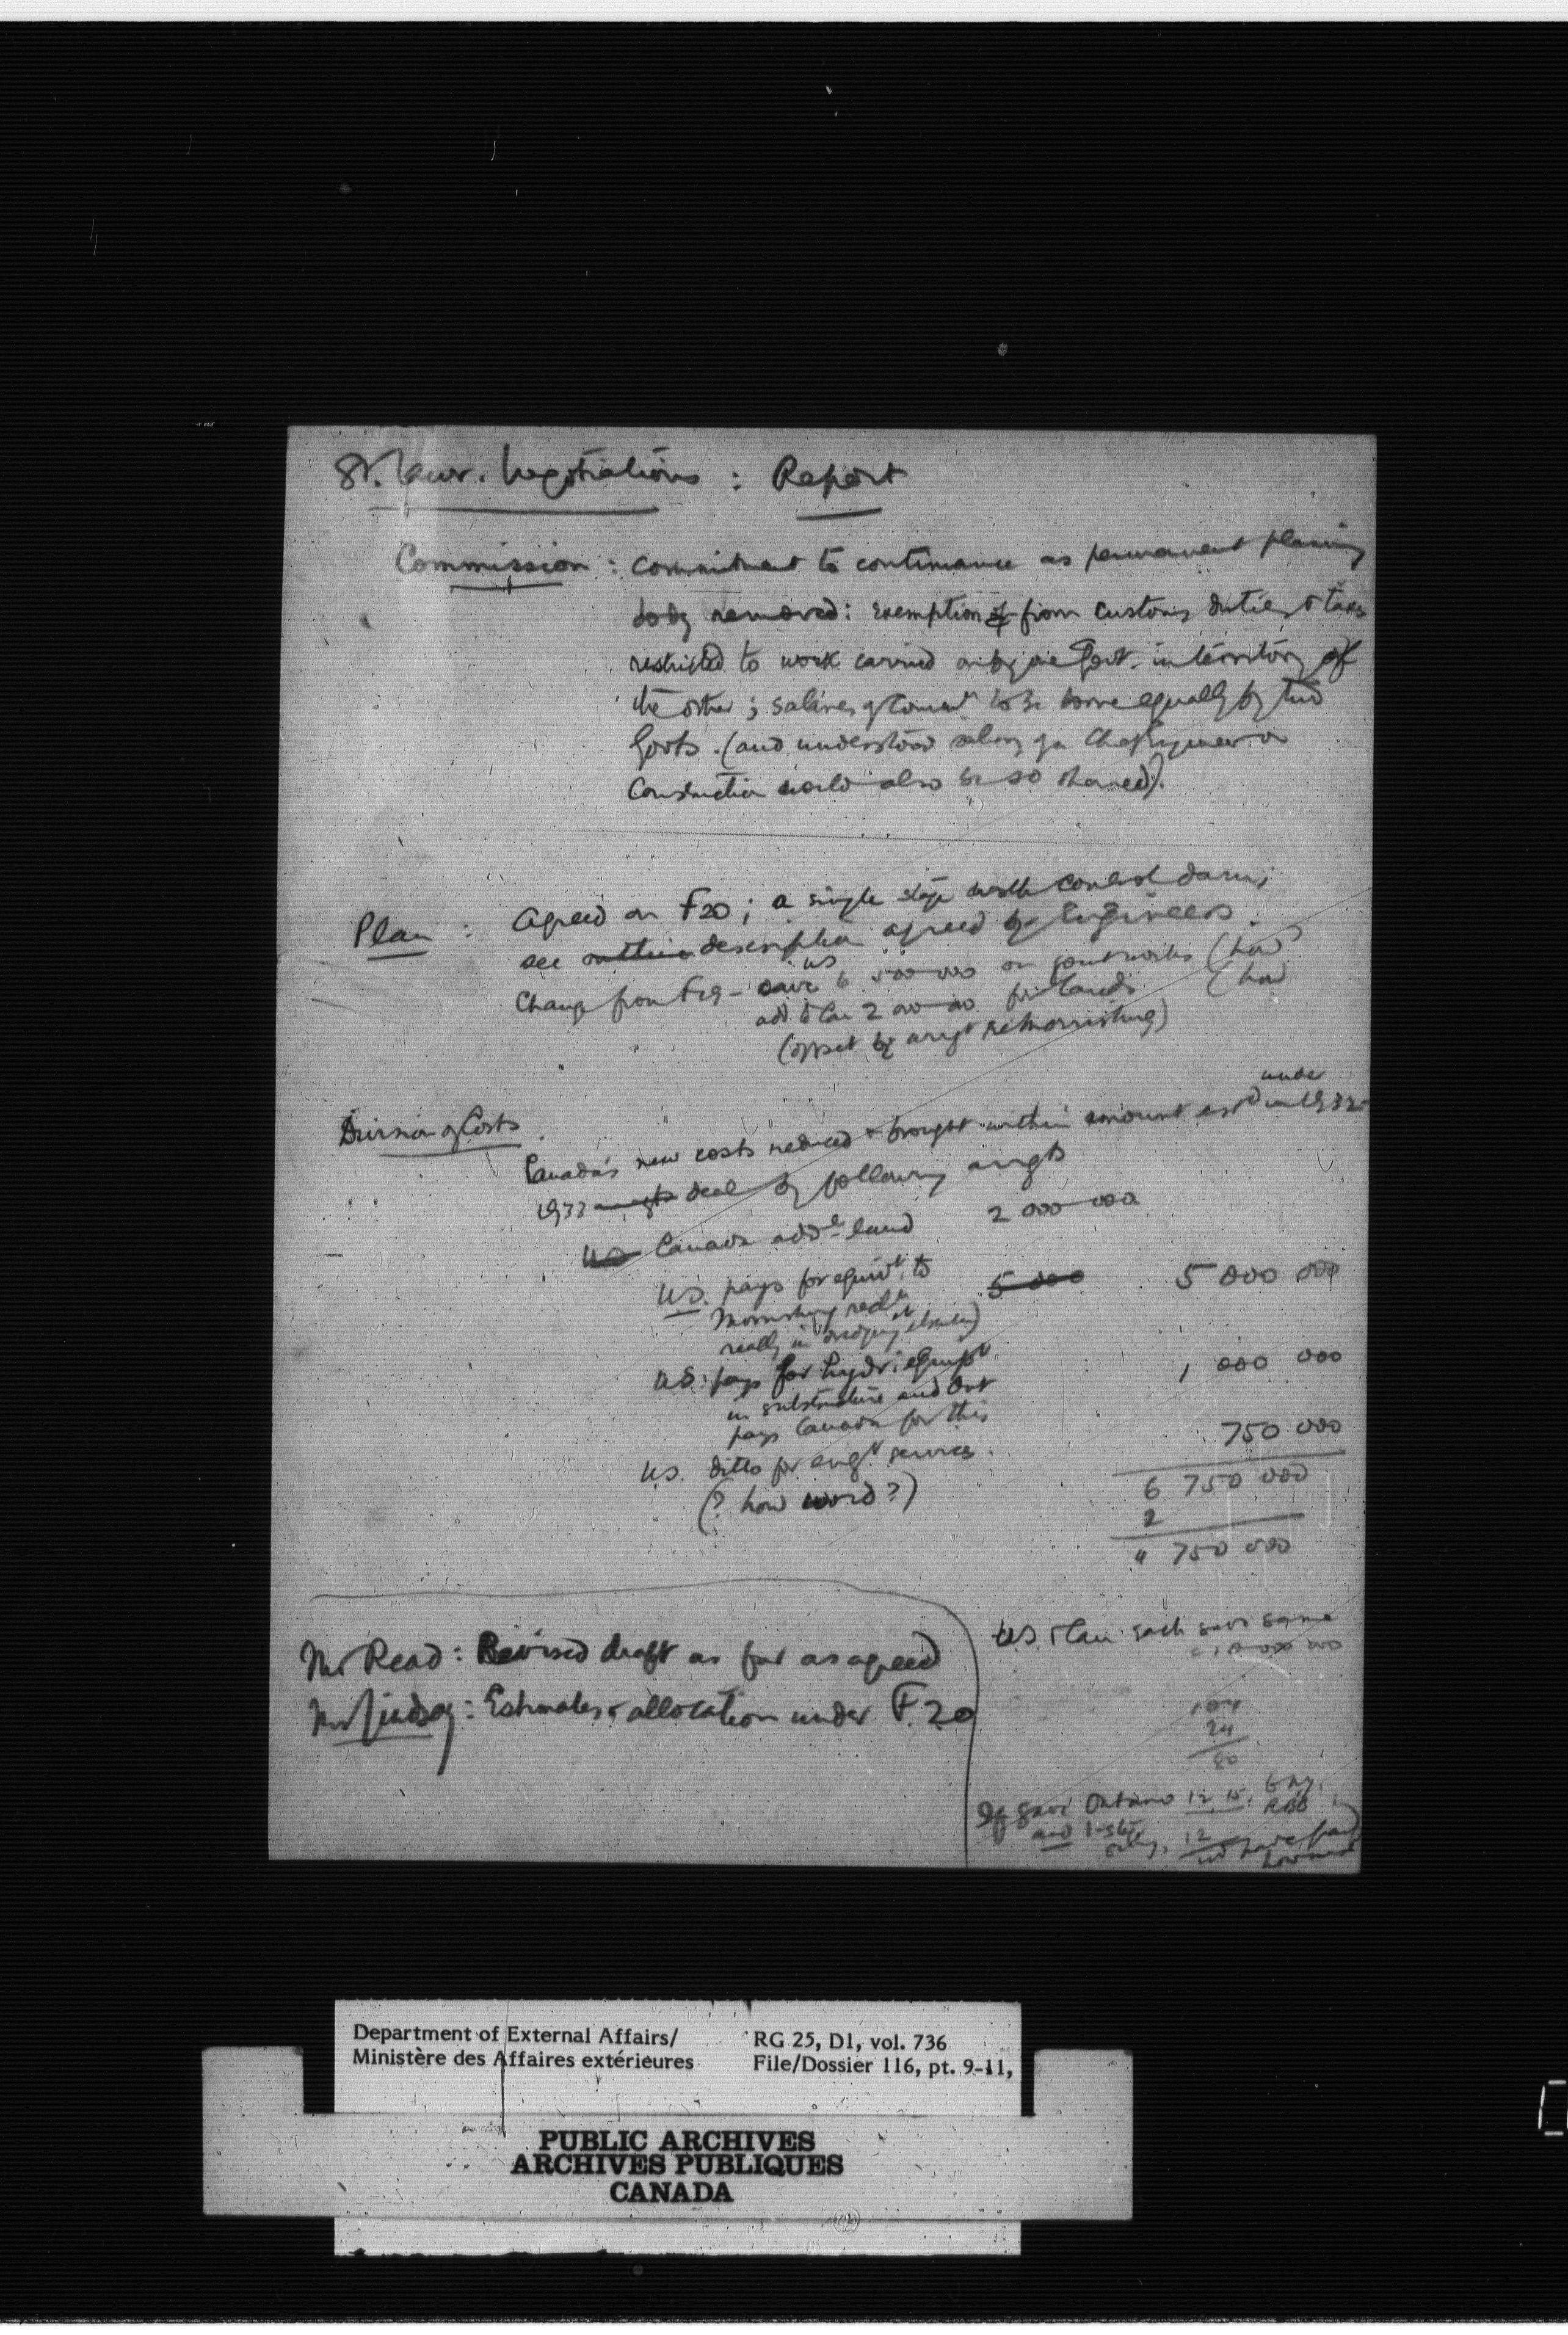 St. Lawr. Negotiations : Report
Commission : Commitment to continuance as permanent planning
body removed: exemption of from customs duties & taxes
restricted to work carried on by one Govt. in territory of
the other ; salaries of to be borne equally by two
Govts. (and understood salary of a Chief Engineer on
Construction would also be so shared).
Plan : Agreed on F20 ; a single stage with control dam ;
see outline description agreed by Engineers.
Change from F19 - save US 6 500 000 on joint works (how
add to Can 2 000 000 for lands (how
(offset by arrgt re Morrisburg)
Division of Costs
Canada's new costs reduced & brought within amount estd in 1932- under
1933 arrgts deal by following arrgts
US Canada addl land 2 000 000
U.S. pays for equivt to 5 000 5 000 000
Morrisburg
really in dredging
U.S. pays for hydr. equipt 1 000 000
in substructure and Ont
pays Canada for this
U.S. ditto for engr services. 750 000
(? how word ?)
6 750 000
2
4 750 000
Mr Read : Revised draft as far as agreed
Mr Lindsay : Estimates & allocation under F.20
U.S. & Can each save same
104
24
80
If save Ontario 12 15.
and 1-stage
only, 12
Department of External Affairs/
Ministère des Affaires extérieures
RG 25, D1, vol. 736
File/Dossier 116, pt. 9-11,
PUBLIC ARCHIVES
ARCHIVES PUBLIQUES
CANADA